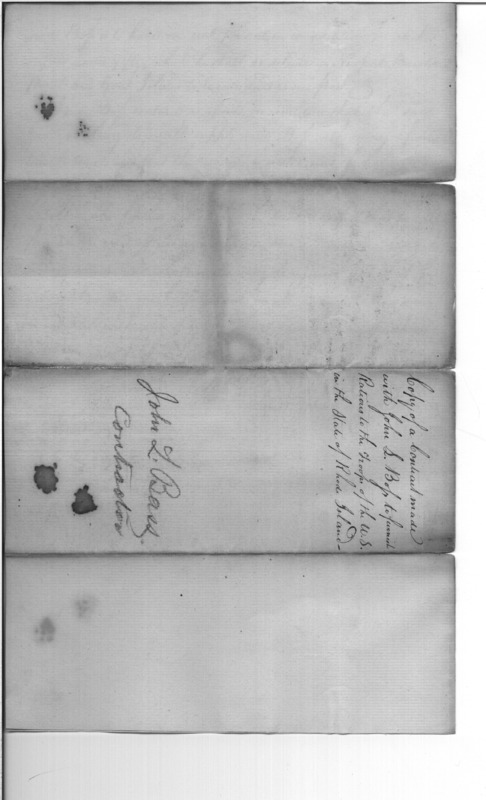 Copy of a Contract made
with John L. Bass to furnish
Rations to the troops of the U.S.
in the State of Rhode Island –
John L Bass
Contractor